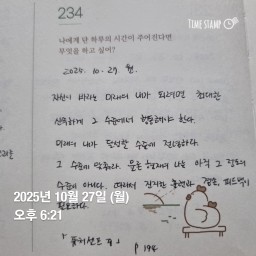 234
TIME STAMP
나에게 단 하루의 시간이 주어진다면
무엇을 하고 싶어?
2025. 10. 27. 월.
자신이 바라는 미래의 내가 되려면 최대한
신속하게 그 수준에서 행동해야 한다.
미래의 내가 달성할 수준에 전념하라.
그 수준에 맞춰라. 물론 현재의 나는 아직 그 정도의
수준이 아니다. 따라서 진지한 훈련과 겸손, 피드백이
필요하다.
2025년 10월 27일 (월)
오후 6:21
『퓨처셀프』 p 194